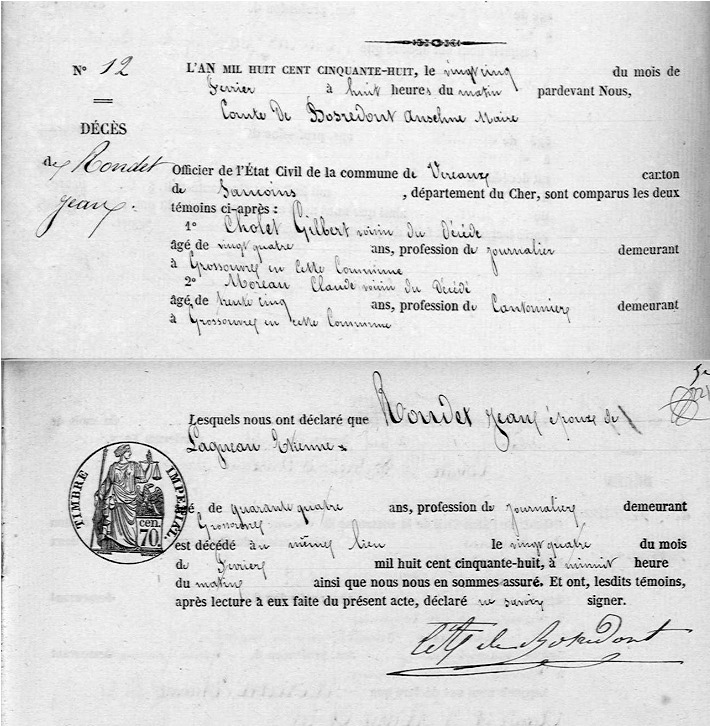 N° 12
L'AN MIL HUIT CENT CINQUANTE-HUIT, le vingt cinq du mois de
Février à huit heures du matin pardevant Nous,
Comte De Bosredont Anselme Maire
DÉCÈS
de Rondet
Jean
Officier de l'État Civil de la commune de Vereaux canton
de Sancoins, département du Cher, sont comparus les deux
témoins ci-après :
1° Cholet Gilbert voisin du Décédé
âgé de vingt quatre ans, profession de journalier demeurant
à Grossouvre en cette Commune
2° Moreau Claude voisin du Décédé
âgé de trente cinq ans, profession de Cantonnier demeurant
à Grossouvre en cette Commune
Lesquels nous ont déclaré que Rondet Jean époux de
Lagneau Etienne
TIMBRE IMPÉRIAL
70 cen.
âgé de quarante quatre ans, profession de journalier demeurant
Grossouvre
est décédé au même lieu le vingt quatre du mois
de Février mil huit cent cinquante-huit, à minuit heure
du matin ainsi que nous nous en sommes assuré. Et ont, lesdits témoins,
après lecture à eux faite du présent acte, déclaré ne savoir signer.
Cte de Bosredont